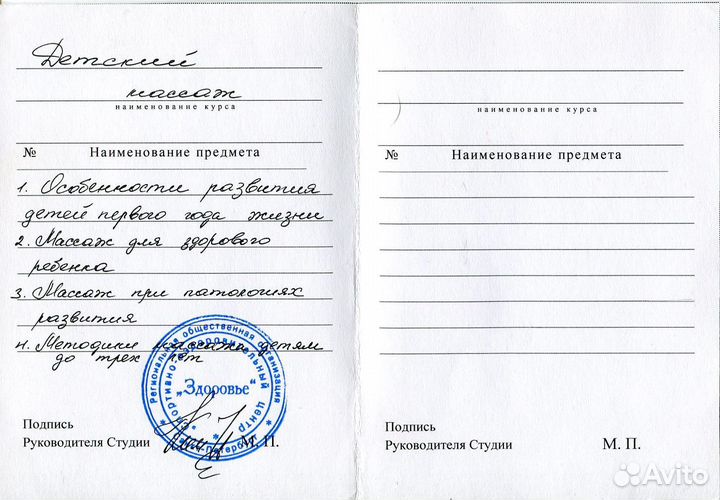 Детский
массаж
наименование курса
№ Наименование предмета
1. Особенности развития
детей первого года жизни
2. Массаж для здорового
ребенка
3. Массаж при патологиях
развития
4. Методики массажа детям
до трех лет
Региональная общественная организация
Спортивно-оздоровительный центр
„Здоровье“
Санкт-Петербург
Подпись
Руководителя Студии М. П.
наименование курса
№ Наименование предмета
Подпись
Руководителя Студии М. П.
Avito